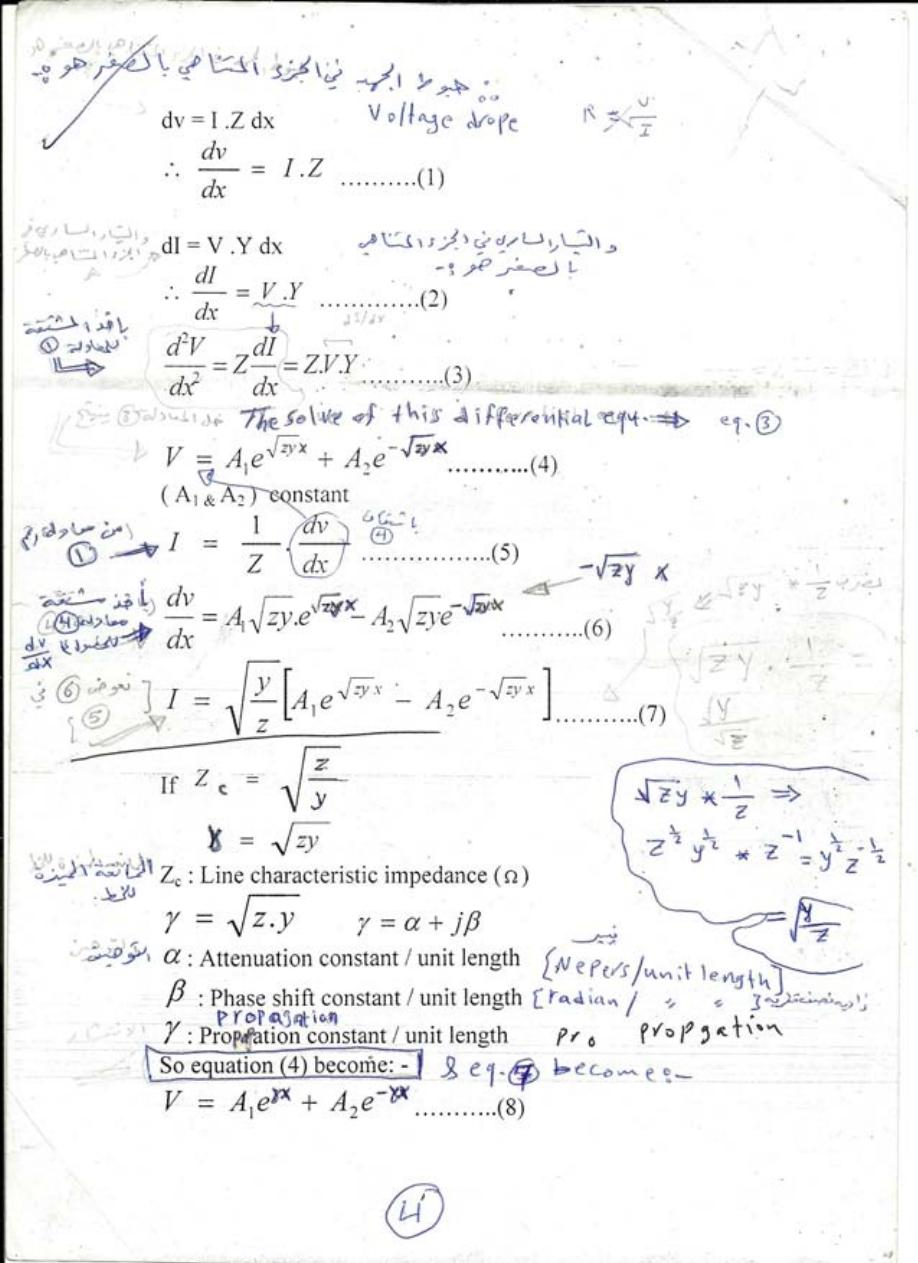 هبوط الجهد في الجزء المتناهي بالصغر هو :-
dv = I .Z dx Voltage drope R = V/I
∴ dv/dx = I .Z ..........(1)
dI = V .Y dx والتيار الساري في الجزء المتناهي
بالصغر هو :-
∴ dI/dx = V .Y .............(2)
d²V/dx² = Z dI/dx = Z.V.Y ...........(3)
بأخذ المشتقة
للمعادلة ①
The solve of this differential equ. ⇒ eq. ③
V = A₁e^{√zy x} + A₂e^{-√zy x} ...........(4)
( A₁ & A₂ ) constant
من معادلة رقم ① → I = 1/Z . dv/dx ................(5)
باشتقاق ④
-√zy x
بأخذ مشتقة
معادلة ④
dv/dx
dv/dx = A₁√zy.e^{√zy x} − A₂√zy e^{-√zy x} ...........(6)
نعوض ⑥ في
⑤
I = √(y/z) [A₁e^{√zy x} − A₂e^{-√zy x}] ...........(7)
If Z c = √(z/y)
√zy * 1/z ⇒
γ = √zy
z^½ y^½ * z^-1 = y^½ z^-½
= √(y/z)
الممانعة المميزة
للخط
Z_c : Line characteristic impedance (Ω)
γ = √z.y γ = α + jβ
نيبر
α : Attenuation constant / unit length [Nepers/unit length]
β : Phase shift constant / unit length [radian / 〃 〃 ]
propagation
γ : Propagation constant / unit length pro propgation
So equation (4) become: - & eq. 7 becomes:-
V = A₁e^{γx} + A₂e^{-γx} ...........(8)
4